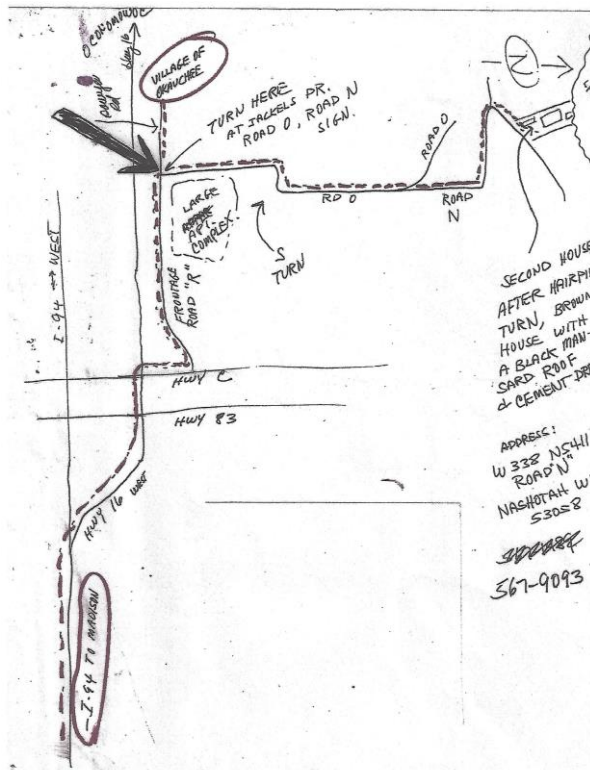 OCONOMOWOC
Hwy 16
VILLAGE OF
OKAUCHEE
TURN HERE
AT JACKELS DR.
ROAD O, ROAD N
SIGN.
N
ROAD O
RD O
ROAD
N
LARGE
APT.
COMPLEX.
S
TURN
FRONTAGE
ROAD "R"
I-94 → WEST
HWY C
HWY 83
HWY 16 WEST
I-94 TO MADISON
SECOND HOUSE
AFTER HAIRPI
TURN, BROWN
HOUSE WITH
A BLACK MAN-
SARD ROOF
& CEMENT DR
ADDRESS:
W 338 N5411
ROAD "N"
NASHOTAH W
53058
567-9093